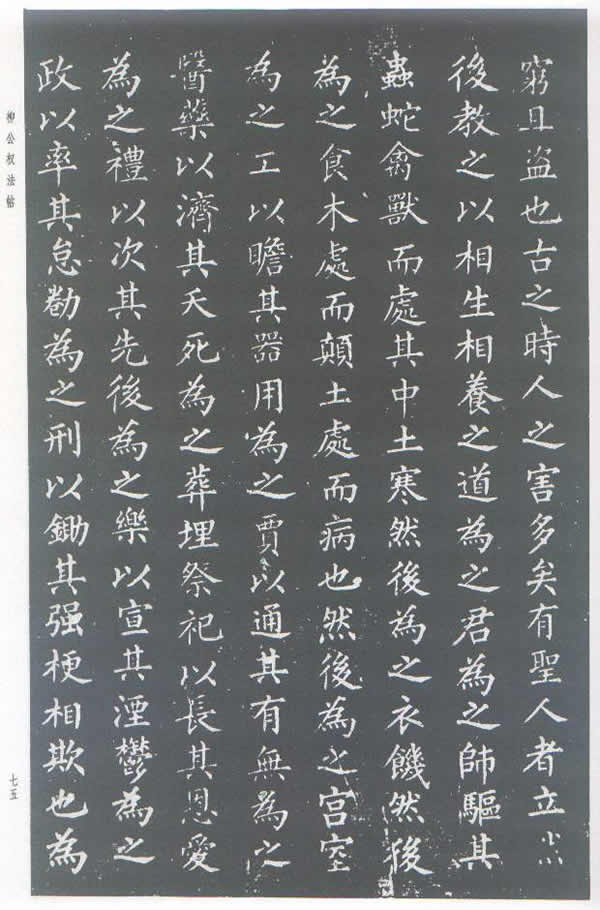 窮且盗也古之時人之害多矣有聖人者立
後教之以相生相養之道為之君為之師驅其
蟲蛇禽獸而處其中土寒然後為之衣饑然後
為之食木處而顛土處而病也然後為之宫室
為之工以瞻其器用為之賈以通其有無為之
醫藥以濟其夭死為之葬埋祭祀以長其恩愛
為之禮以次其先後為之樂以宣其湮鬱為之
政以率其怠勌為之刑以鋤其强梗相欺也為
柳公权法帖
七五